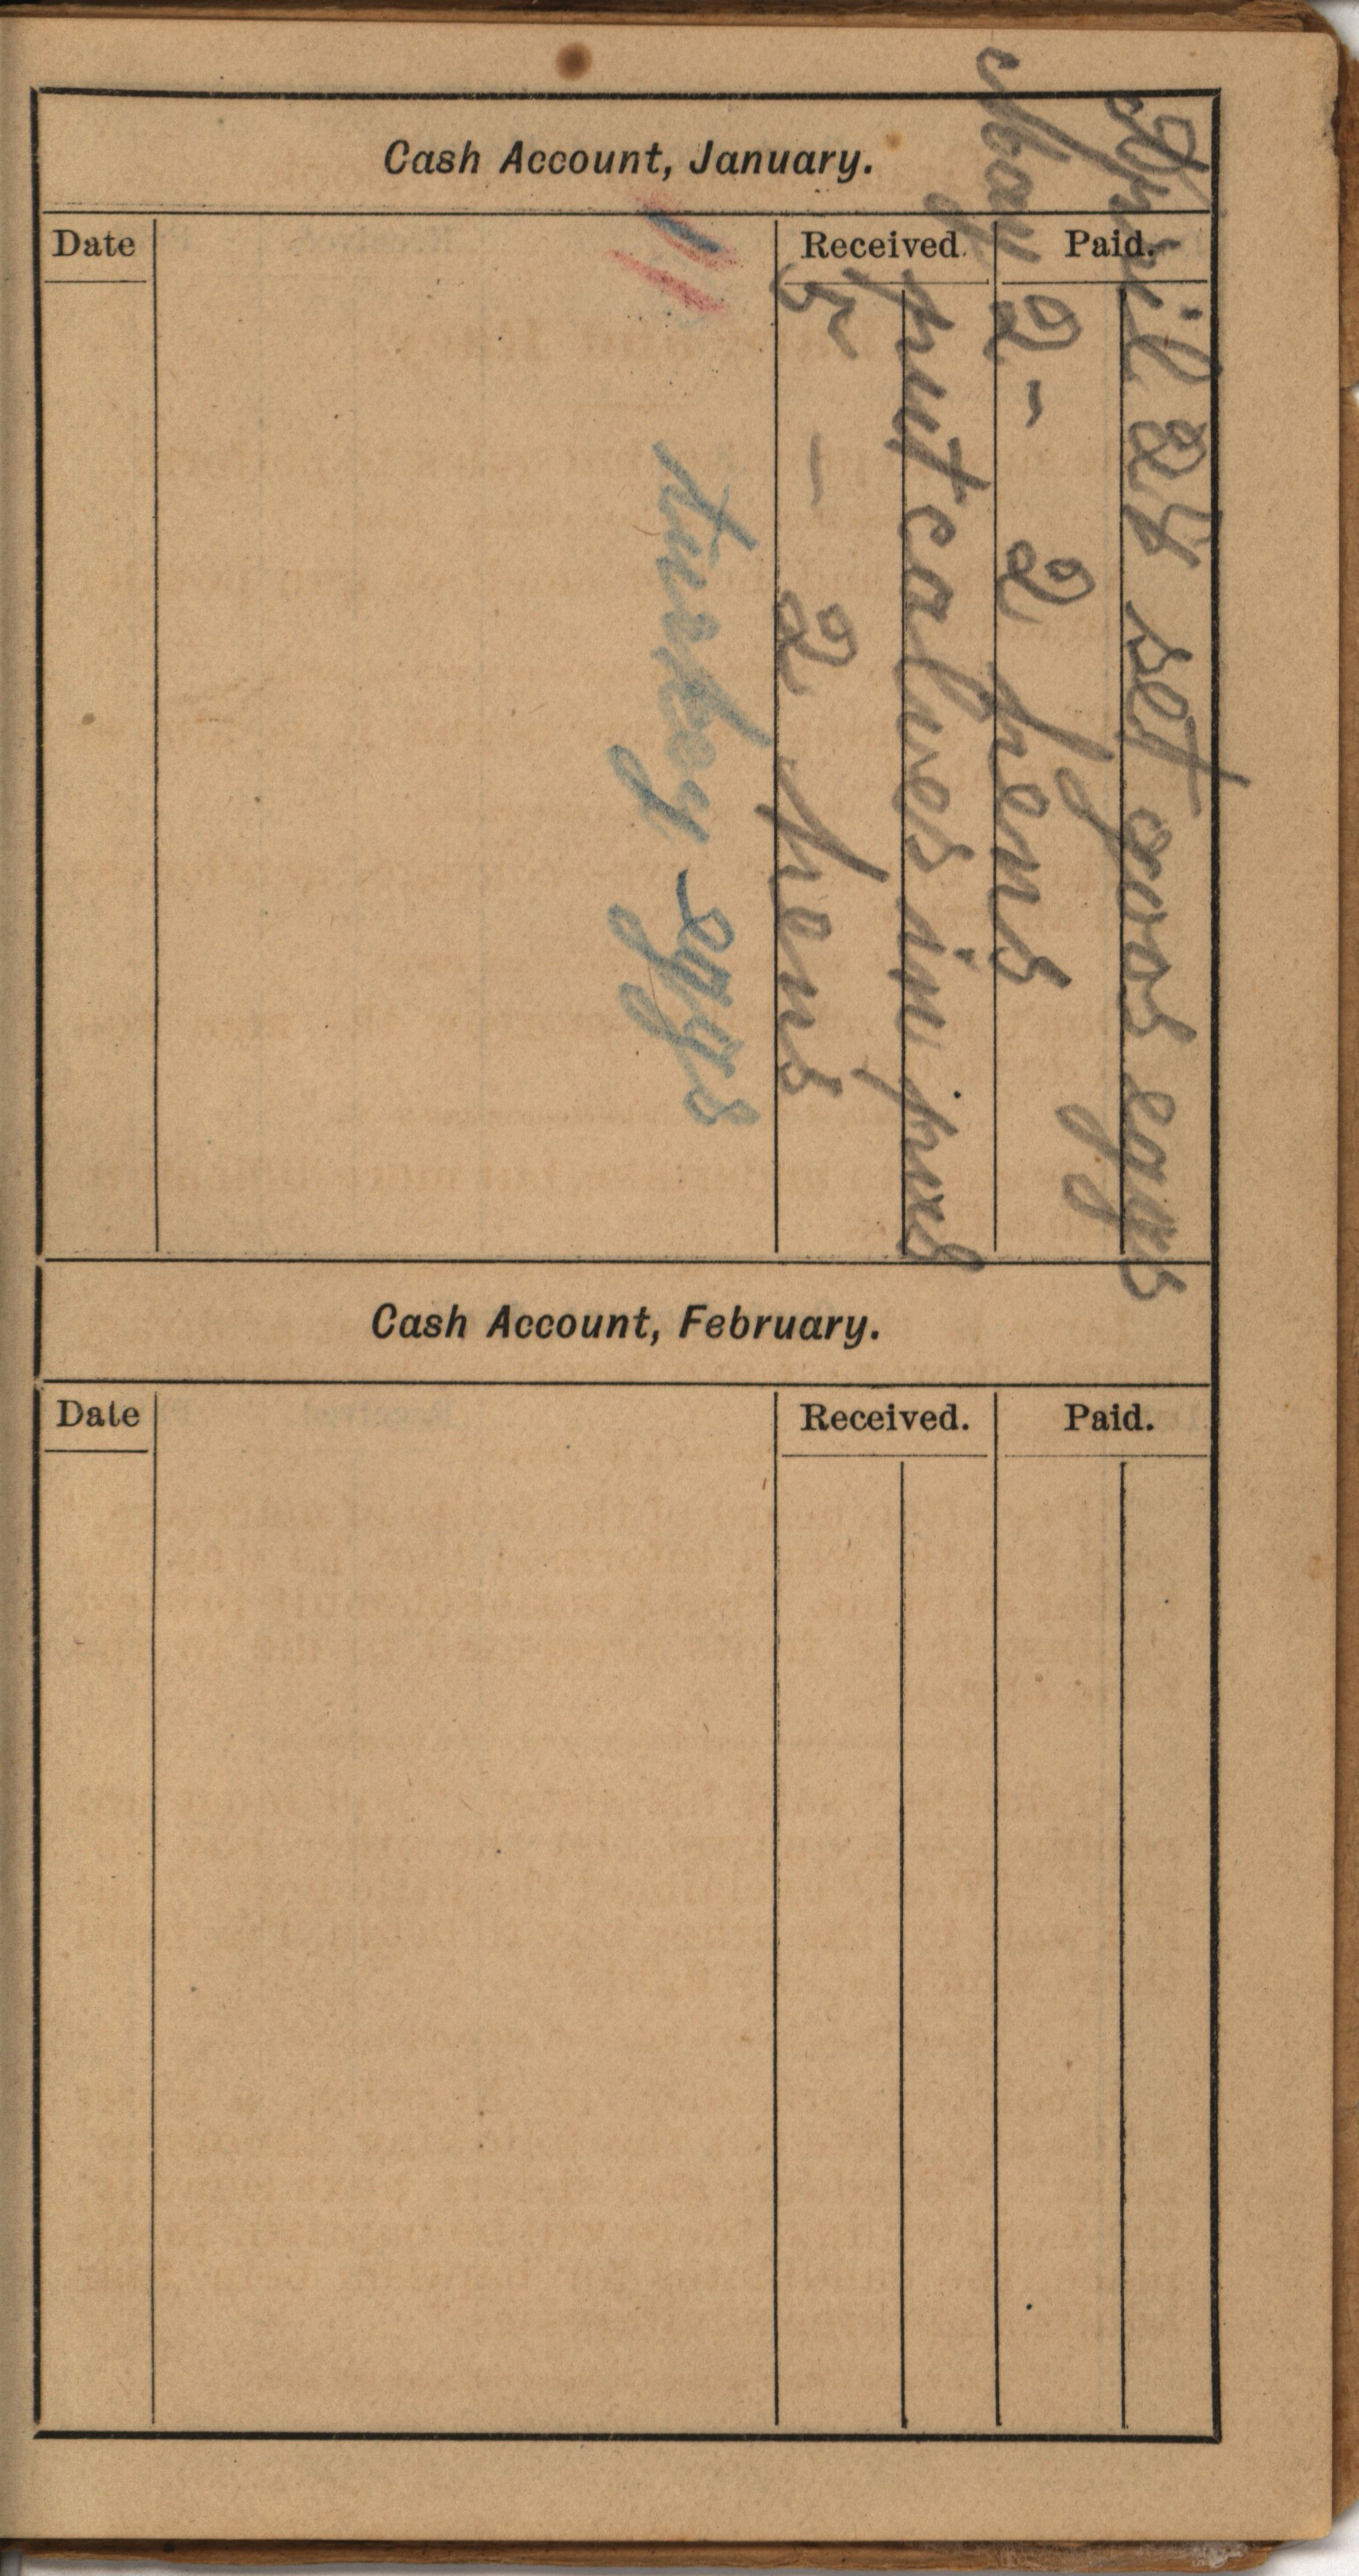 Cash Account, January.
Date Received. Paid.
April 24 set goos eggs
May 2 - 2 hens
put calves in
5 - 2 hens
11 turkey eggs
Cash Account, February.
Date Received. Paid.